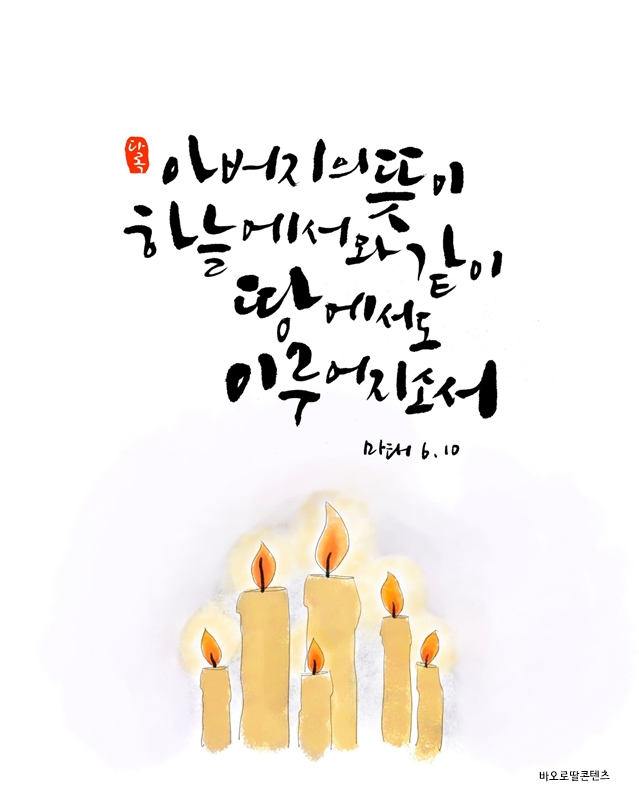 다록
아버지의 뜻이
하늘에서와 같이
땅에서도
이루어지소서
마태 6.10
바오로딸콘텐츠